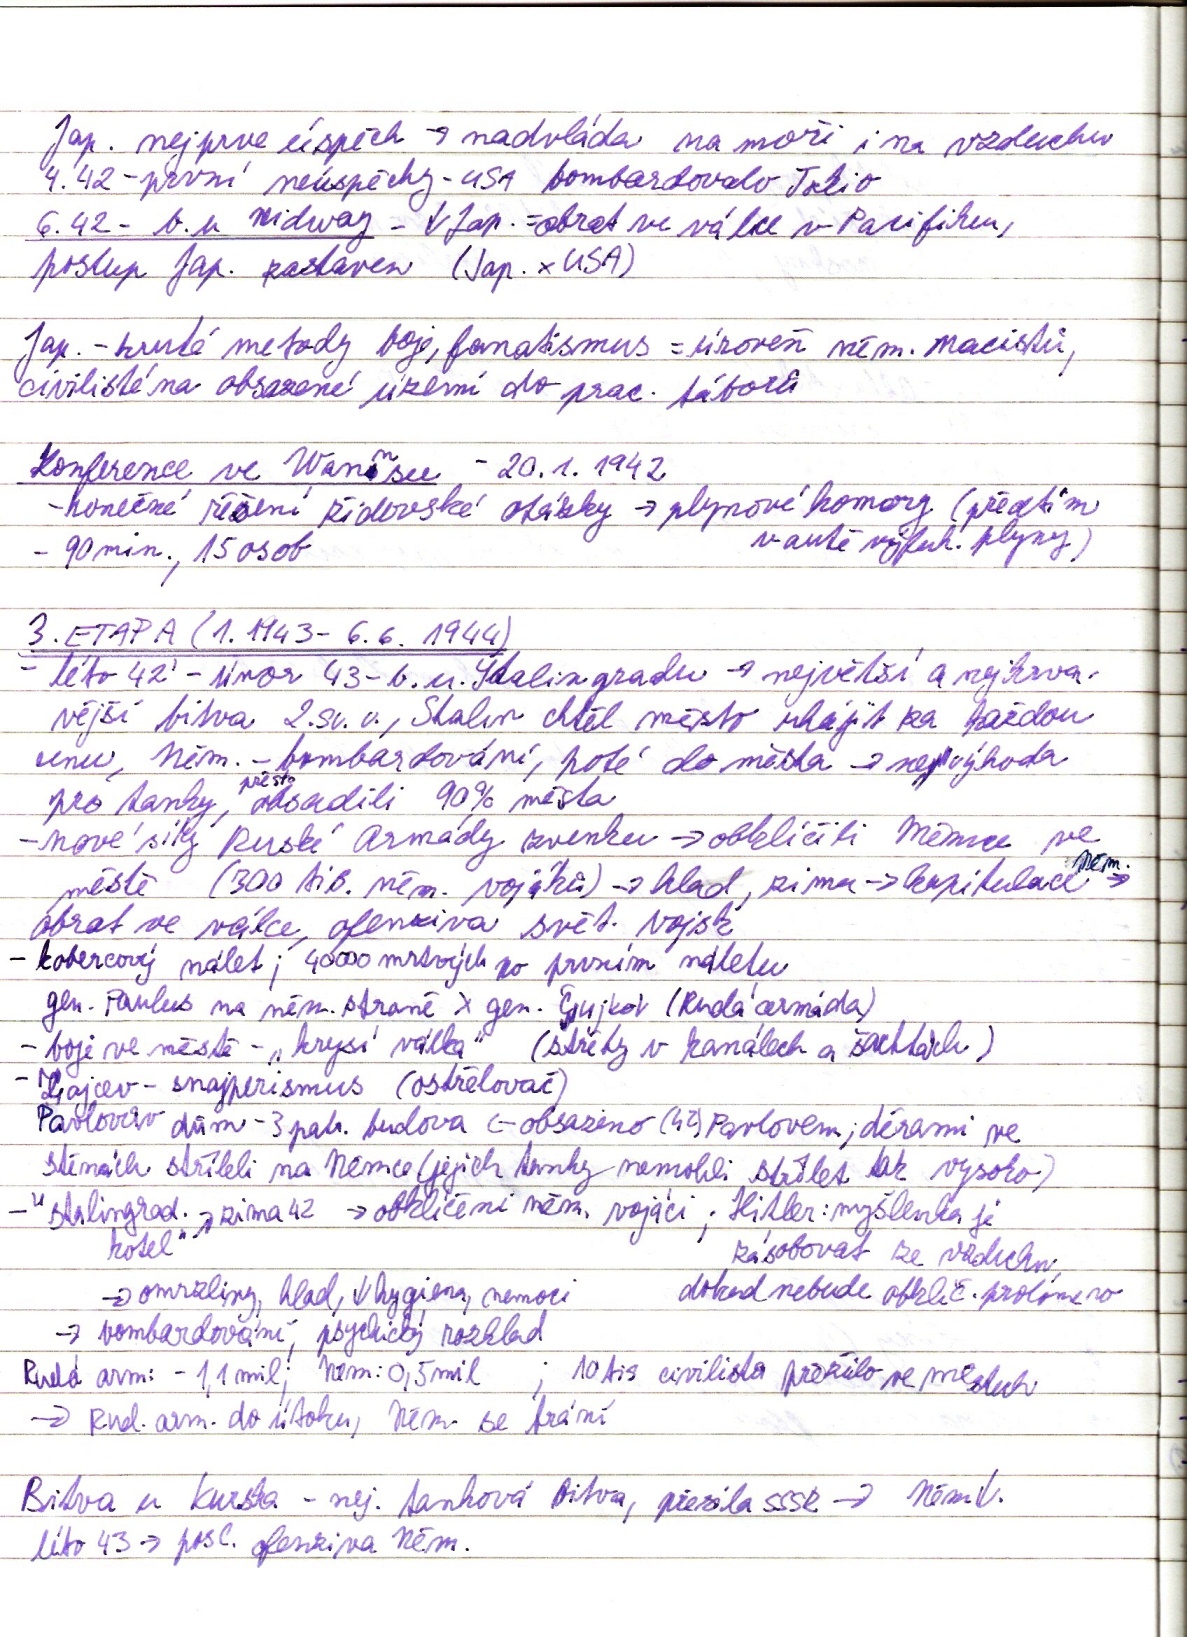 Jap. nejprve úspěch → nadvláda na moři i na vzduchu
4.42 - první neúspěchy - USA bombardovalo Tokio
6.42 - b. u Midway - ↓ Jap. = obrat ve válce v Pacifiku,
postup Jap. zastaven (Jap. x USA)
Jap. - kruté metody boje, fanatismus = úroveň něm. nacistů,
civilisté na obsazené území do prac. táborů
Konference ve Wannsee - 20.1. 1942
- konečné řešení židovské otázky → plynové komory (předtím
v autě výfuk. plyny)
- 90 min., 15 osob
3. ETAPA (1. 1943 - 6.6. 1944)
- léto 42 - únor 43 - b. u. Stalingradu → největší a nejkrva-
vější bitva 2. sv. v., Stalin chtěl město uhájit za každou
cenu, Něm. - bombardování, poté do města → nevýhoda
pro tanky, přesto obsadili 90% města
- nové síly Ruské Armády zvenku → obklíčili Němce ve
městě (300 tis. něm. vojáků) → hlad, zima → kapitulace něm. →
obrat ve válce, ofenziva svět. vojsk
- kobercový nálet; 40000 mrtvých po prvním náletu
gen. Paulus na něm. straně x gen. Čujkov (Rudá armáda)
- boje ve městě - „krysí válka" (střety v kanálech a šachtách)
- Zajcev - snajperismus (ostřelovač)
Pavlovův dům - 3 patr. budova ← obsazeno (42) Pavlovem; děrami ve
stěnách stříleli na Němce (jejich tanky nemohli střílet tak vysoko)
- "Stalingrad. → zima 42 → obklíčení něm. vojáci; Hitler: myšlenka je
kotel" zásobovat ze vzduchu,
→ omrzliny, hlad, ↓ hygiena, nemoci dokud nebude obklíč. prolomeno
→ bombardování, psychický rozklad
Rudá arm: - 1,1 mil; Něm: 0,5 mil ; 10 tis civilistů přežilo ve městech
→ Rud. arm. do útoku, Něm. se brání
Bitva u Kurska - nej. tanková bitva, SSSR → Něm ↓.
léto 43 → posl. ofenziva Něm.